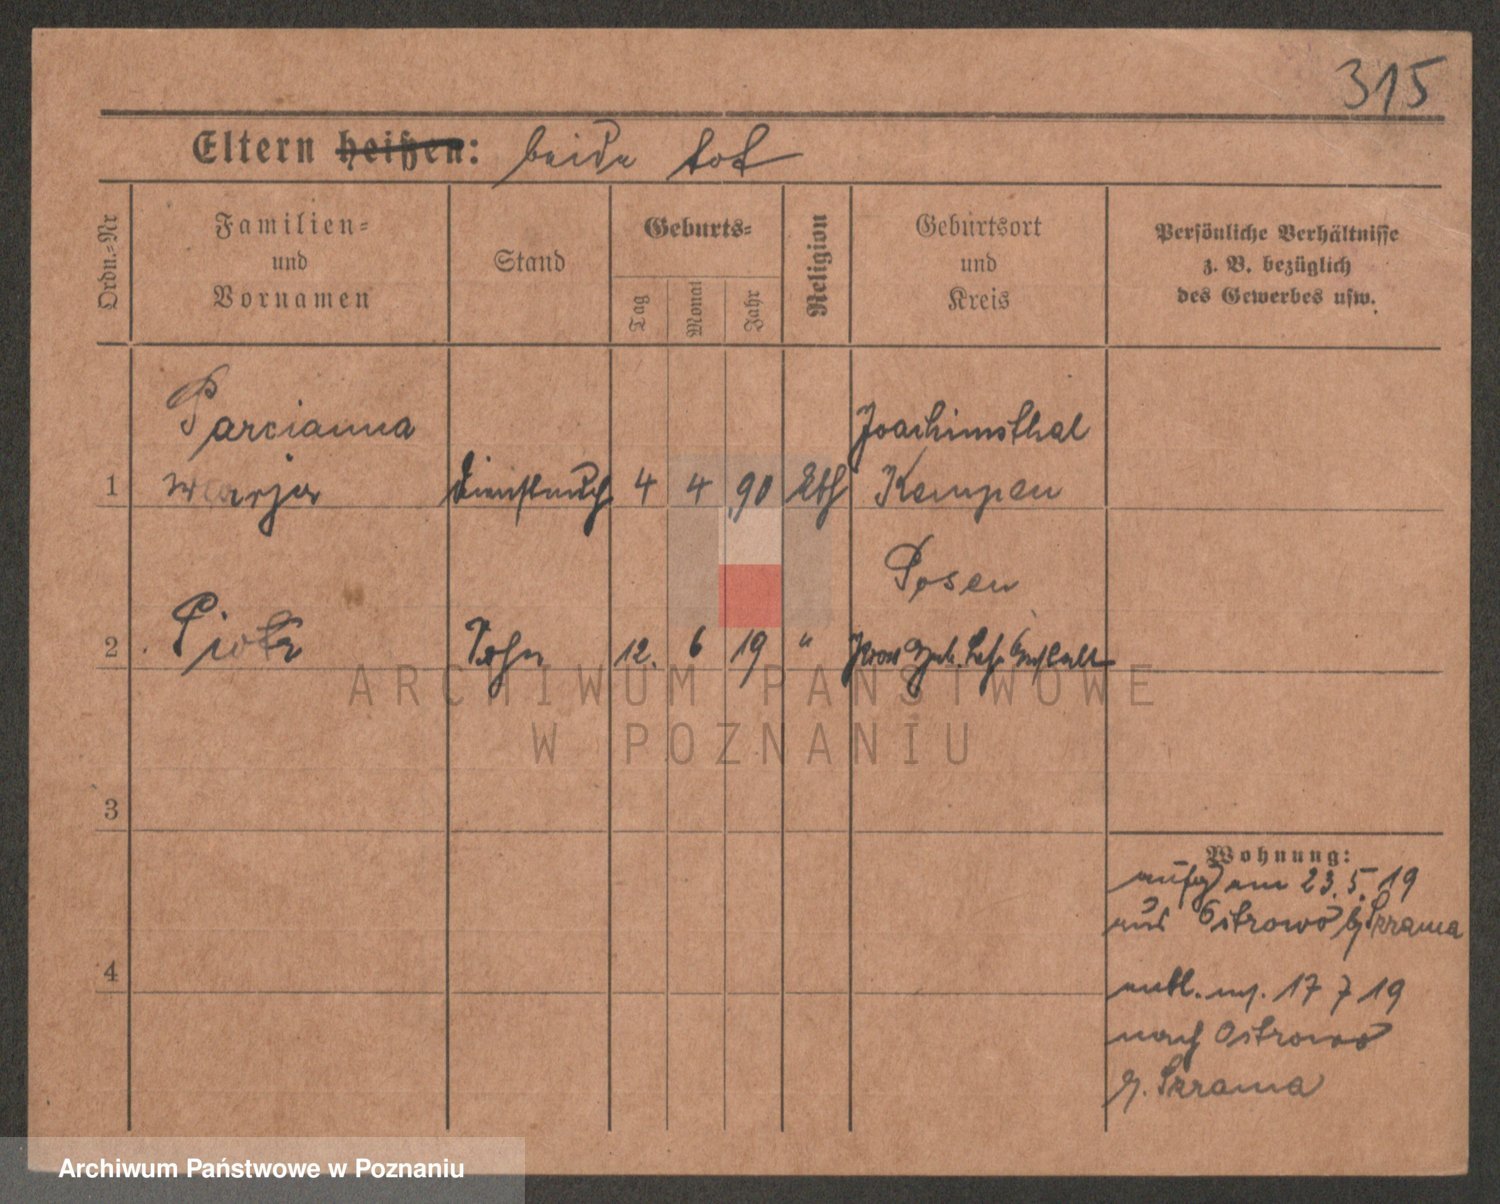 315
Eltern heißen: beide tot
Ordn.=Nr
Familien=
und
Vornamen
Stand
Geburts=
Tag
Monat
Jahr
Religion
Geburtsort
und
Kreis
Persönliche Verhältnisse
z. B. bezüglich
des Gewerbes usw.
Parcianna
Joachimsthal
1 Marja Dienstmagd 4 4 90 kth Kempen
Posen
2 Piotr Sohn 12. 6 19 "
3
4
Wohnung:
am 23.5.19
aus Ostrowo
17 7 19
nach Ostrowo
ARCHIWUM PAŃSTWOWE
W POZNANIU
Archiwum Państwowe w Poznaniu